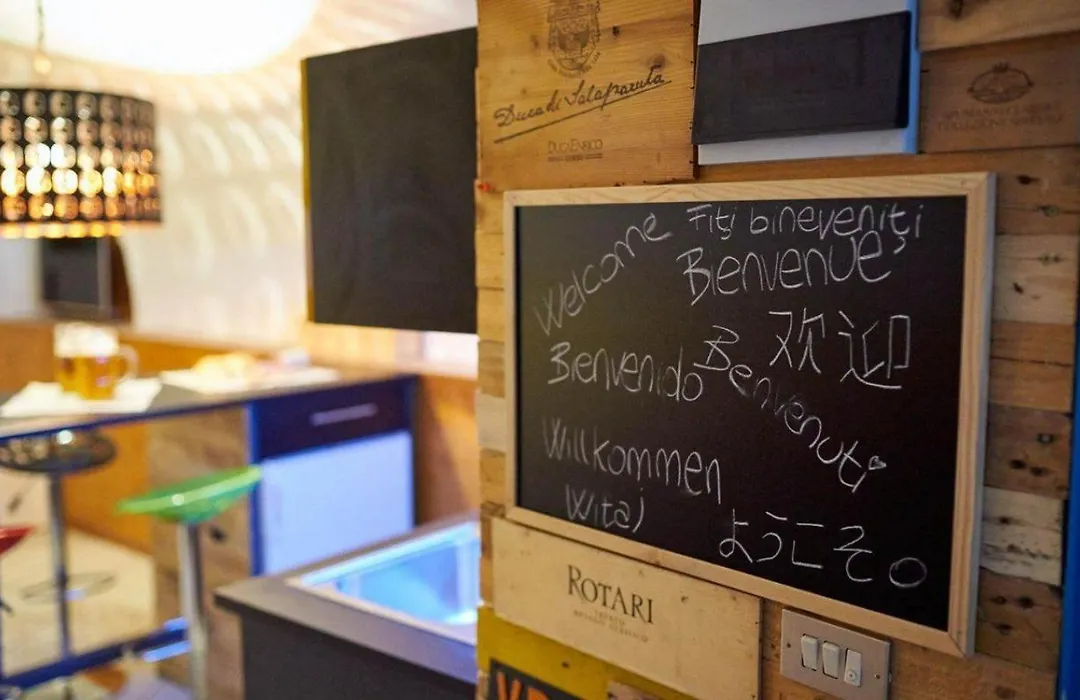 Duca di Salaparuta
DUCA ENRICO
Welcome
Fiți bineveniți
Bienvenue
欢迎
Bienvenido
Benvenuti
Willkommen
Witaj
ようこそ。
ROTARI